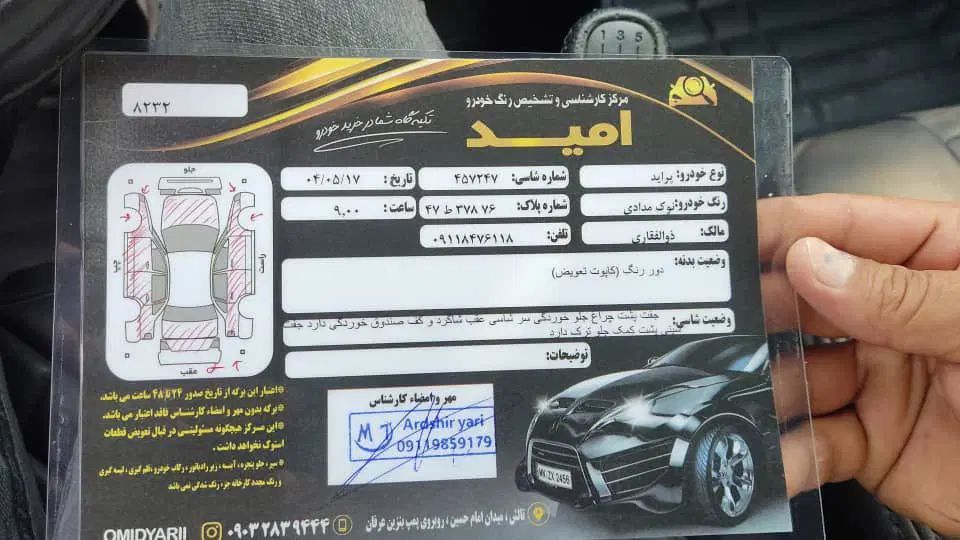 1 3 5
مرکز کارشناسی و تشخیص رنگ خودرو
امید
تکیه گاه شما در خرید خودرو
۸۲۳۲
نوع خودرو: پراید
شماره شاسی: ۴۵۷۲۴۷
تاریخ : ۰۴/۰۵/۱۷
رنگ خودرو: نوک مدادی
شماره پلاک: ۷۶ ۳۷۸ ط ۴۷
ساعت : ۹,۰۰
مالک: ذوالفقاری
تلفن: ۰۹۱۱۸۴۷۶۱۱۸
وضعیت بدنه:
دور رنگ (کاپوت تعویض)
وضعیت شاسی: جفت پشت چراغ جلو خوردگی سر شاسی عقب شاگرد و کف صندوق خوردگی دارد جفت
سینی پشت کمک جلو ترک دارد
توضیحات:
جلو
چپ
راست
عقب
مهر و امضاء کارشناس
M
Ardshir yari
09119859179
*اعتبار این برگه از تاریخ صدور ۲۴ تا ۴۸ ساعت می باشد.
*برگه بدون مهر و امضاء کارشناس فاقد اعتبار می باشد.
*این مرکز هیچگونه مسئولیتی در قبال تعویض قطعات
استوک نخواهد داشت.
*سپر، جلو پنجره، آینه، زیر رادیاتور، رکاب خودرو، قلم گیری، لیسه گیری
و رنگ مجدد کارخانه جزء رنگ شدگی نمی باشد
تالش، میدان امام حسین، روبروی پمپ بنزین عرفان
۰۹۰۳۲۸۳۹۴۴۴
OMIDYARII